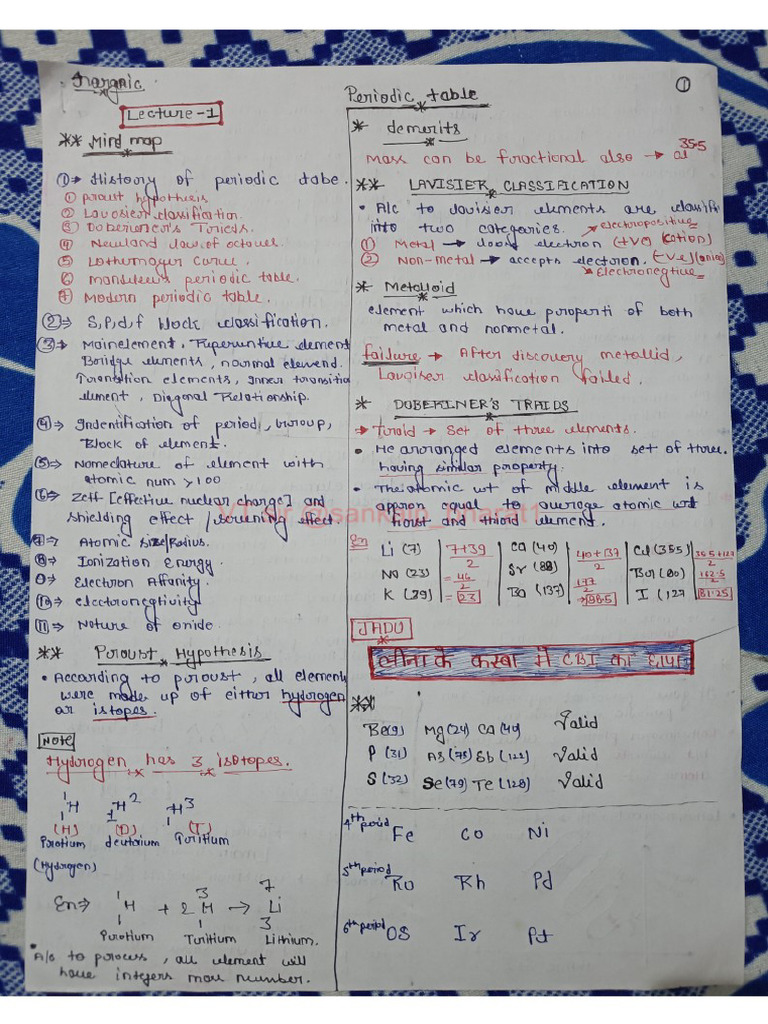 Inorganic
Periodic table
①
Lecture-1
** Mind map
①⇒ History of periodic tabe.
① proust hypothesis
② Lavosier classification.
③ Doberiener's Turids.
④ Newland law of octaves
⑤ Lothermayer Curve.
⑥ mandeleev periodic table.
⑦ Modern periodic table.
②⇒ S, P, d, f block classification.
③⇒ Mainelement, Reperuntive element
Bridge elements, normal elemend.
Transition elements, Inner transitio
element, Diagonal Relationship.
④⇒ Indentification of period, Group,
Block of element.
⑤⇒ Nomeclature of element with
atomic num >100
⑥⇒ Zeff [effective nuclear charge] and
shielding effect / screening effect
⑦⇒ Atomic size/Radius.
⑧⇒ Ionization Energy.
⑨⇒ Electron Affanity.
⑩⇒ electronegtivity
⑪⇒ Nature of oxide.
** Proust Hypothesis
• According to proust, all element
were made up of either hydrogen
or istopes.
Note
Hydrogen has 3 isotopes.
¹₁H ₁H² ₁H³
(H) (D) (T)
Protium deuterium Tritium
(Hydrogen)
En⇒ ¹₁H + 2 ³₁H → ⁷₃Li
Protium Tritium Lithium.
• A/c to process, all element will
have integers mass number.
* demerits
Mass can be fractional also → Cl 35.5
** LAVISIER CLASSIFICATION
• A/c to lavisier elements are classifi
into two categories.
→ electropositive
① Metal → loose electron (+ve) (cation)
② Non-metal → accepts electron. (-ve) (anion)
→ Electronegtive
* Metalloid
element which have properti of both
metal and nonmetal.
failure → After discovery metallid,
Lavoiser classification failed.
* DOBERINER'S TRAIDS
→ Traid → Set of three elements.
• He arranged elements into set of three.
having similar property.
• The atomic wt of middle element is
approx equal to average atomic wt
first and third element.
En Li (7) 7+39/2 Ca (40) 40+137/2 Cl (35.5) 35.5+127/2
Na (23) = 46/2 Sr (88) 177/2 Br (80) 162.5/2
K (39) = 23 Ba (137) → 88.5 I (127 81.25
JADU
लीना के कस्बा में CBI का छापा
**
Be(9) Mg(24) Ca(40) Valid
P (31) As (75) Sb (122) Valid
S (32) Se(79) Te (128) Valid
4th period Fe Co Ni
5th period Ru Rh Pd
6th period OS Ir Pt